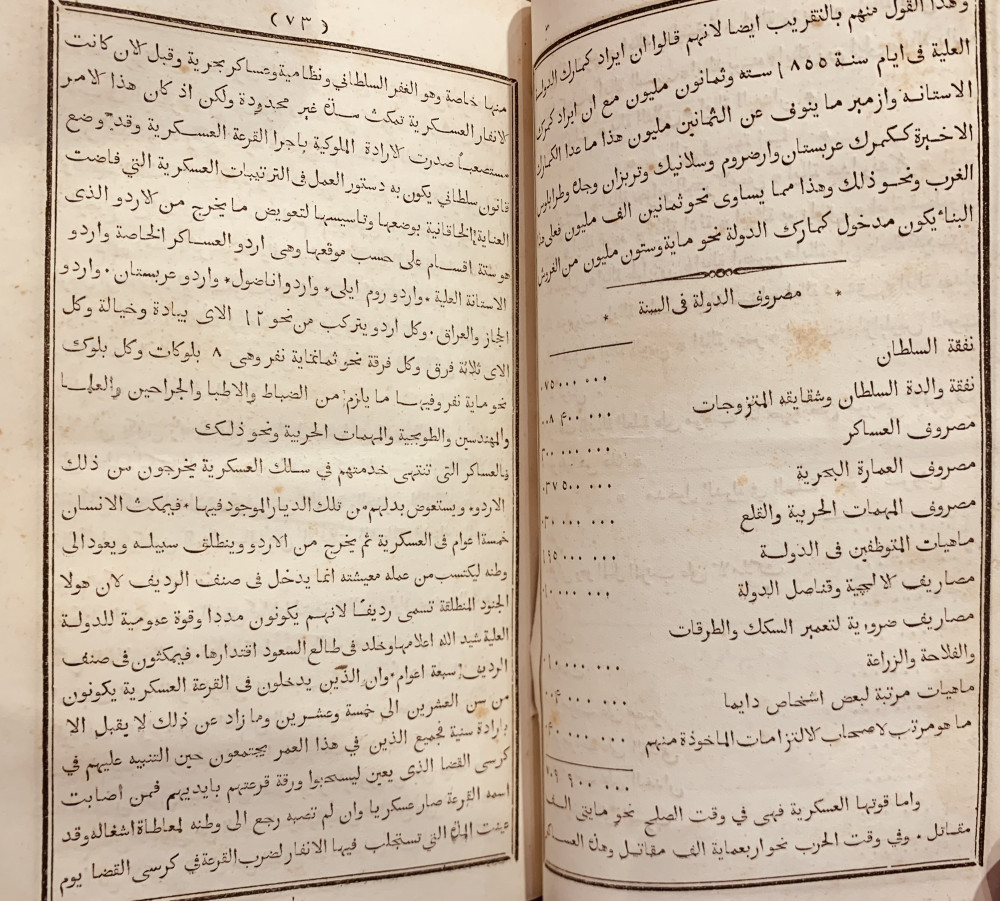 وهذا القول منهم بالتقريب ايضا لانهم قالوا ان ايراد كمارك الدولة
العلية فى ايام سنة ١٨٥٥ ستة وثمانون مليون مع ان ايراد كمرك
الاستانة وازمير ما ينوف عن الثمانين مليون هذا ما عدا الكمارك
الاخيرة ككمرك عربستان وارضروم وسلانيك وتربزان وجدة وطرابلوس
الغرب ونحو ذلك وهذا مما يساوى نحو ثمانين الف مليون فعلى هذا
البناء يكون مدخول كمارك الدولة نحو ماية وستون مليون من الغروش
* مصروف الدولة فى السنة *
نفقة السلطان ٠٧٥ ٠٠٠ ٠٠٠
نفقة والدة السلطان وشقايقه المتزوجات ٠٠٨ ٤٠٠ ٠٠٠
مصروف العساكر ٣٠٠ ٠٠٠ ٠٠٠
مصروف العمارة البحرية ٠٣٧ ٥٠٠ ٠٠٠
مصروف المهمات الحربية والقلع ٠٣٠ ٠٠٠ ٠٠٠
ماهيات المتوظفين فى الدولة ١٩٥ ٠٠٠ ٠٠٠
مصاريف الالچية وقناصل الدولة ٠١٠ ٠٠٠ ٠٠٠
مصاريف ضرورية لتعمير السكك والطرقات
والفلاحة والزراعة ٠١٠ ٠٠٠ ٠٠٠
ماهيات مرتبة لبعض اشخاص دايما ٠٠٠ ٠٠٠
ما هو مرتب لاصحاب الالتزامات الماخوذة منهم ٠٠٠ ٠٠٠
٩٠٠ ٠٠٠
واما قوتها العسكرية فهى في وقت الصلح نحو مايتى الف
مقاتل . وفي وقت الحرب نحو اربعماية الف مقاتل وهذه العساكر
(٧٣)
منها خاصة وهو الغفر السلطاني ونظامية وعساكر بحرية وقبل لان كانت
الانفار العسكرية تمكث مدة غير محدودة ولكن اذ كان هذا الامر
مستصعبا صدرت الارادة الملوكية باجرا القرعة العسكرية وقد وضع
قانون سلطاني يكون به دستور العمل فى الترتيبات العسكرية التي فاضت
العناية الخاقانية بوضعها وتاسيسها لتعويض ما يخرج من الاردو الذى
هو ستة اقسام على حسب موقعها وهى اردو العساكر الخاصة واردو
الاستانة العلية * واردو روم ايلى * واردو اناضول * واردو عربستان . واردو
الحجاز والعراق . وكل اردو يتركب من نحو ١٢ الاى بيادة وخيالة وكل
الاى ثلاثة فرق وكل فرقة نحو ثمانماية نفر وهى ٨ بلوكات وكل بلوك
نحو ماية نفر وفيها ما يلزم من الضباط والاطبا والجراحين والعلما
والمهندسين والطوبجية والمهمات الحربية ونحو ذلك
فالعساكر التى تنتهى خدمتهم في سلك العسكرية يخرجون من ذلك
الاردو ويستعوض بدلهم من تلك الديار الموجود فيها * فيمكث الانسان
خمسة اعوام فى العسكرية ثم يخرج من الاردو وينطلق سبيله ويعود الى
وطنه ليكتسب من عمله معيشته انما يدخل فى صنف الرديف لان هولا
الجنود المنطلقة تسمى رديفا لانهم يكونون مددا وقوة عمومية للدولة
العلية شيد الله اعلامها وخلد فى طالع السعود اقتدارها . فيمكثون فى صنف
الرديف سبعة اعوام . وان الذين يدخلون فى القرعة العسكرية يكونون
من سن العشرين الى خمسة وعشرين وما زاد عن ذلك لا يقبل الا
بارادة سنية فجميع الذين في هذا العمر يجتمعون حين التنبيه عليهم في
كرسى القضا الذى يعين ليسحبوا ورقة قرعتهم بايديهم فمن اصابت
اسمه القرعة صار عسكريا وان لم تصبه رجع الى وطنه لمعاطاة اشغاله وقد
عينت المدة التي تستجلب فيها الانفار لضرب القرعة في كرسى القضا يوم